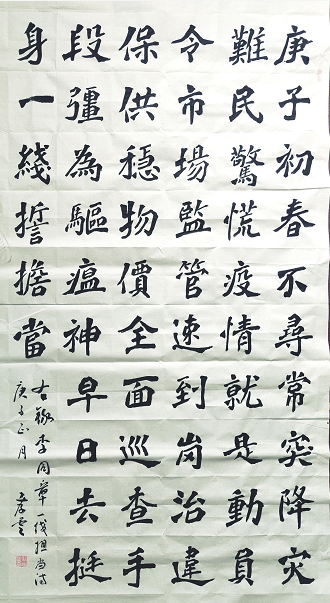 庚子初春不尋常突降灾
難民驚慌疫情就是動員
令市場監管速到崗治違
保供穩物價全面巡查手
段彊為驅瘟神早日去挺
身一綫誓擔當
右錄李同章一线担当诗
庚子正月